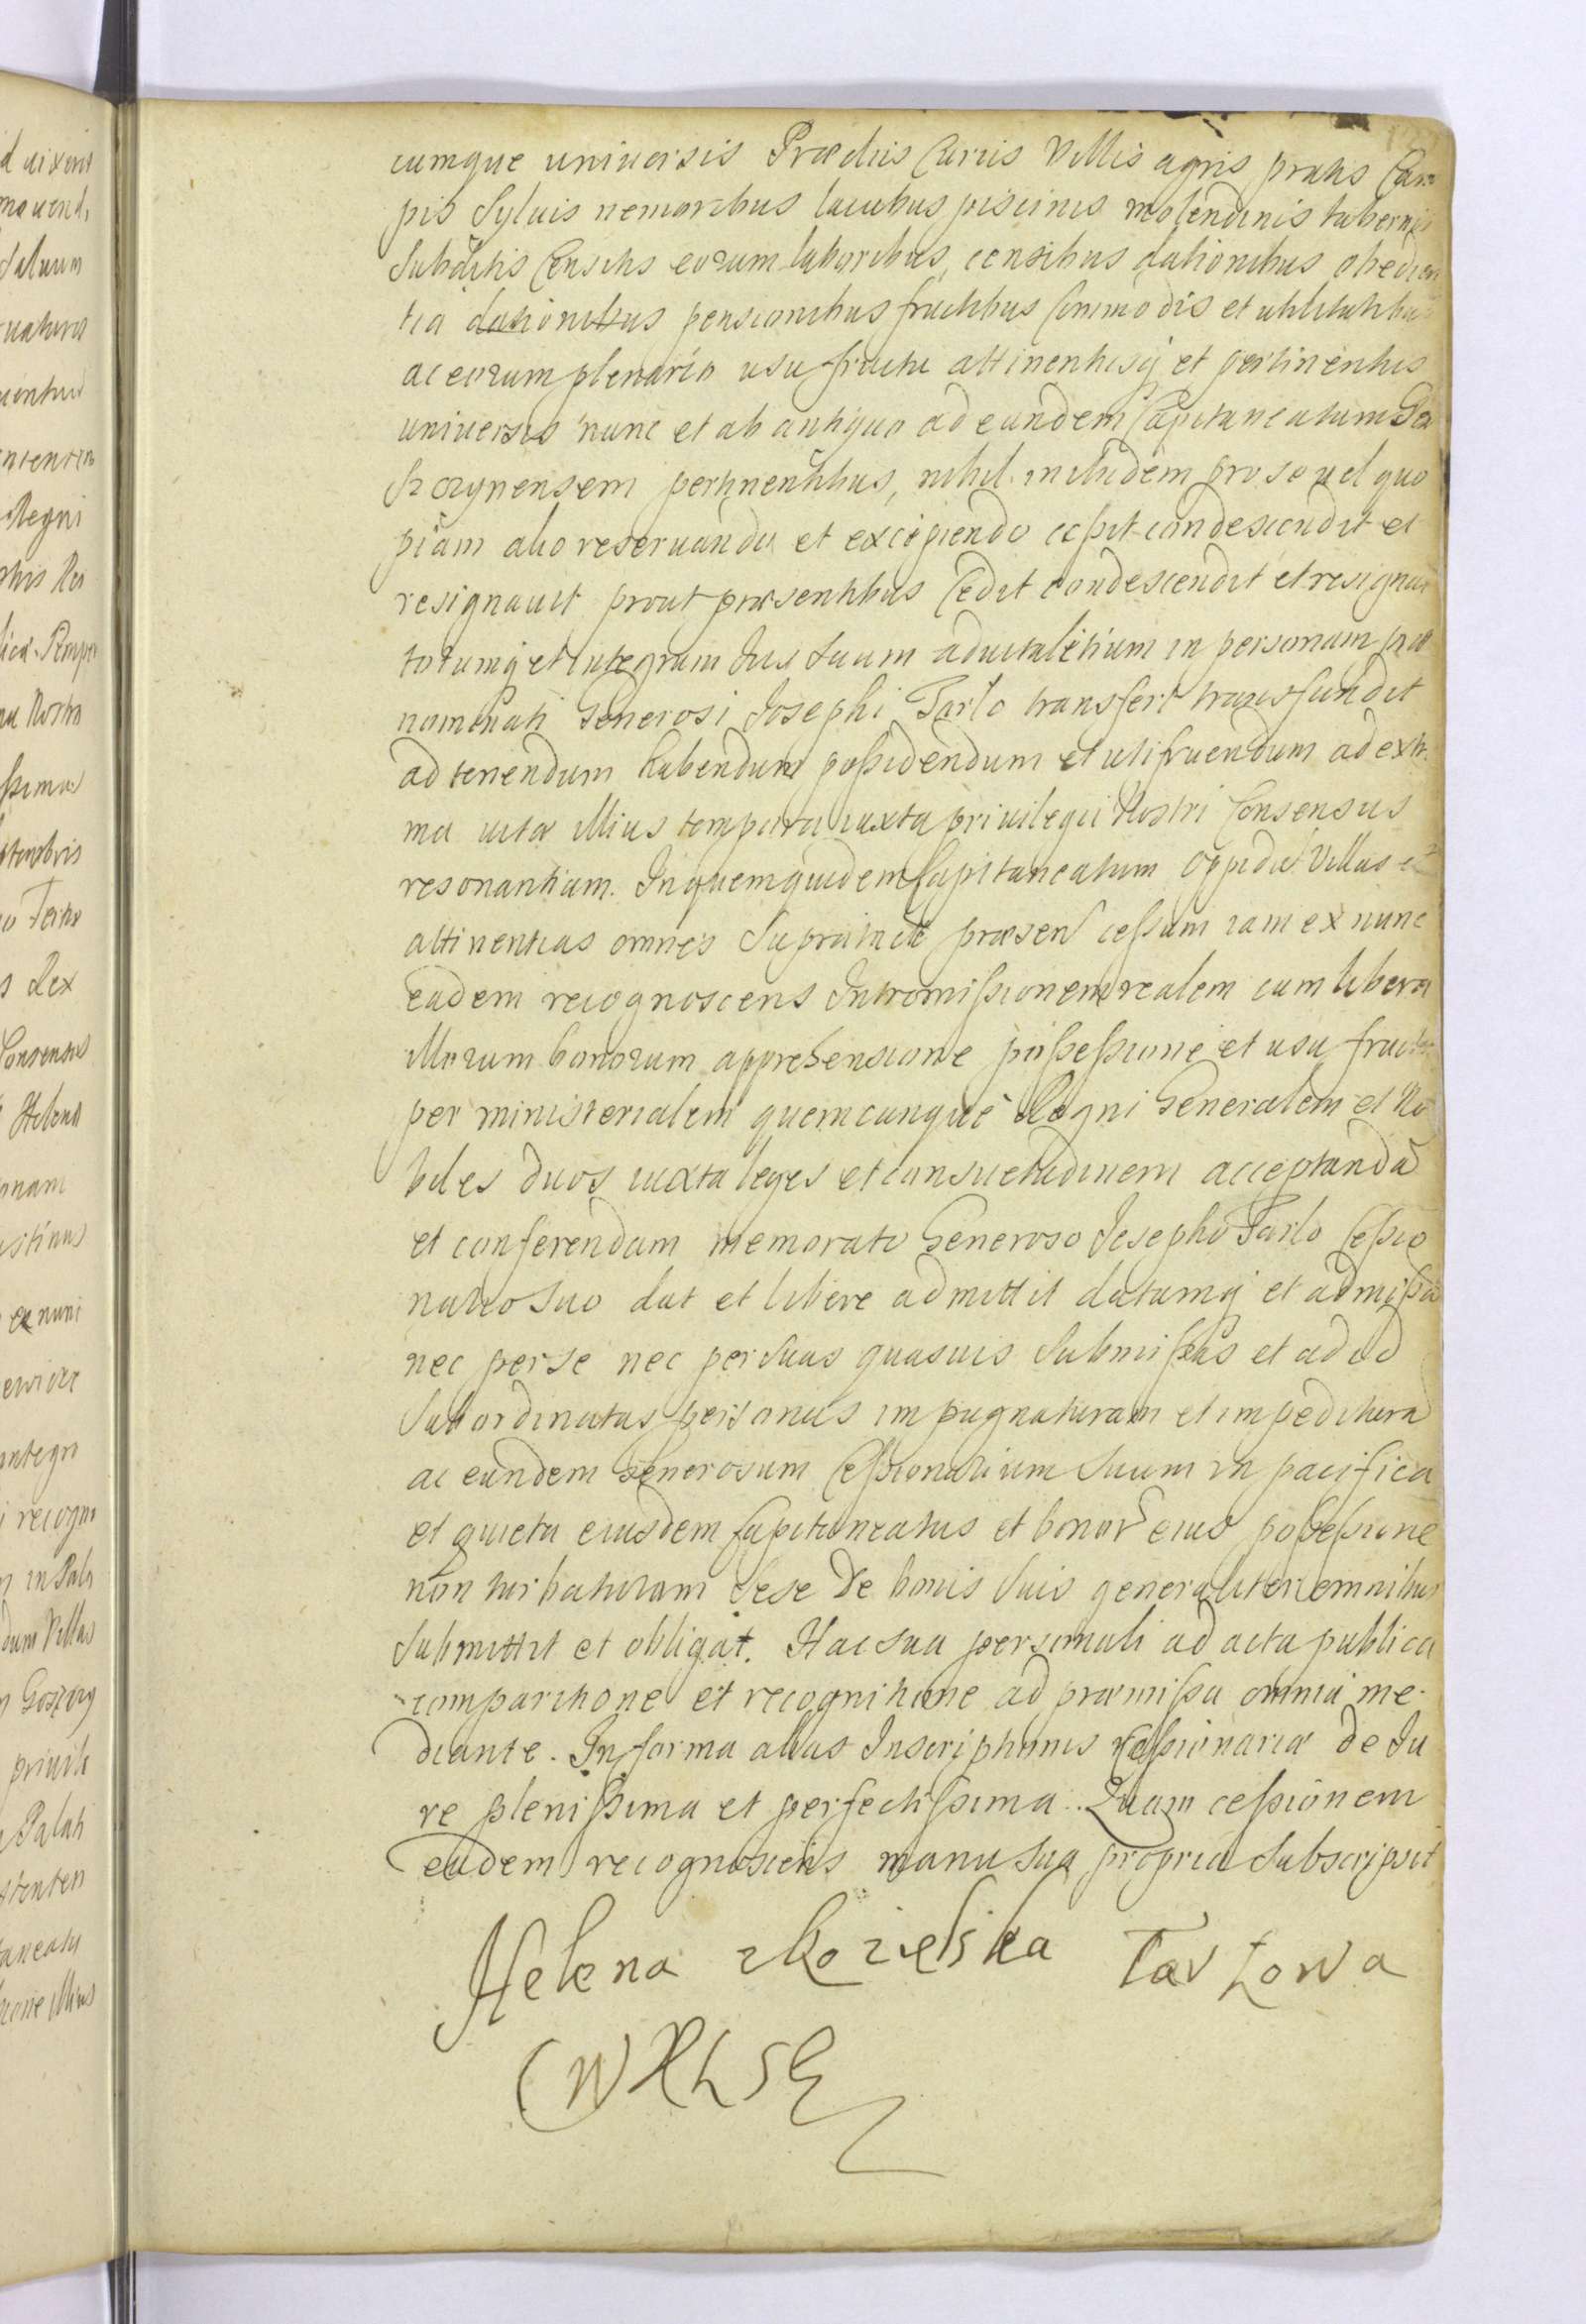 cumque uniuersis Prædiis Curiis Villis agris pratis Cam
pis Syluis nemoribus lacubus piscinis molendinis tabernis
Subditis Censitis eorum laboribus, censibus dationibus obedien
tia dationibus pensionibus fructibus Commodis et utilitatibus
ac eorum plenario usu fructu attinentiisq et pertinentiis
uniuersis nunc et ab antiquo ad eundem Capitaneatum Go
szczynensem pertinentibus, nihil inibidem pro se uel quo
piam alio reseruando et excipiendo cessit condescendit et
resignauit prout præsentibus Cedit condescendit et resignat
totumq et integrum Jus Suum aduitalitium in personam præ
nominati Generosi Josephi Tarło transfert transfundit
ad tenendum habendum possidendum et utifruendum ad extre
ma uitæ illius tempora iuxta priuilegii Nostri Consensus
resonantiam. In quem quidem Capitaneatum Oppidū Villas et
attinentias omnes Supratacte præsen cessum iam ex nunc
eadem recognoscens Intromissionem realem cum libera
illorum bonorum apprehensione possessione et usu fructu
per ministerialem quemcunque Regni Generalem et No
biles duos iuxta leges et consuetudinem acceptandā
et conferendam memorato Generoso Josepho Tarło Cessio
nario Suo dat et libere admittit datamq et admissā
nec per se nec per Suas quasuis Submissas et ad id
Subordinatas personas impugnaturam et impedituram
ac eundem Generosum Cessionarium Suum in pacifica
et quieta eiusdem Capitaneatus et bonor eius possessione
non turbaturam Sese De bonis Suis generaliter omnibus
Submittit et obligat. Hac Sua personali ad acta publica
comparitione et recognitione ad præmissa omnia me
diante. In forma alias Inscriptionis Cessionariæ de Ju
re plenissima et perfectissima. Quam cessionem
eadem recognoscens manu Sua propria Subscripsit
Helena zkozielska Tarłowa
CWXLSE